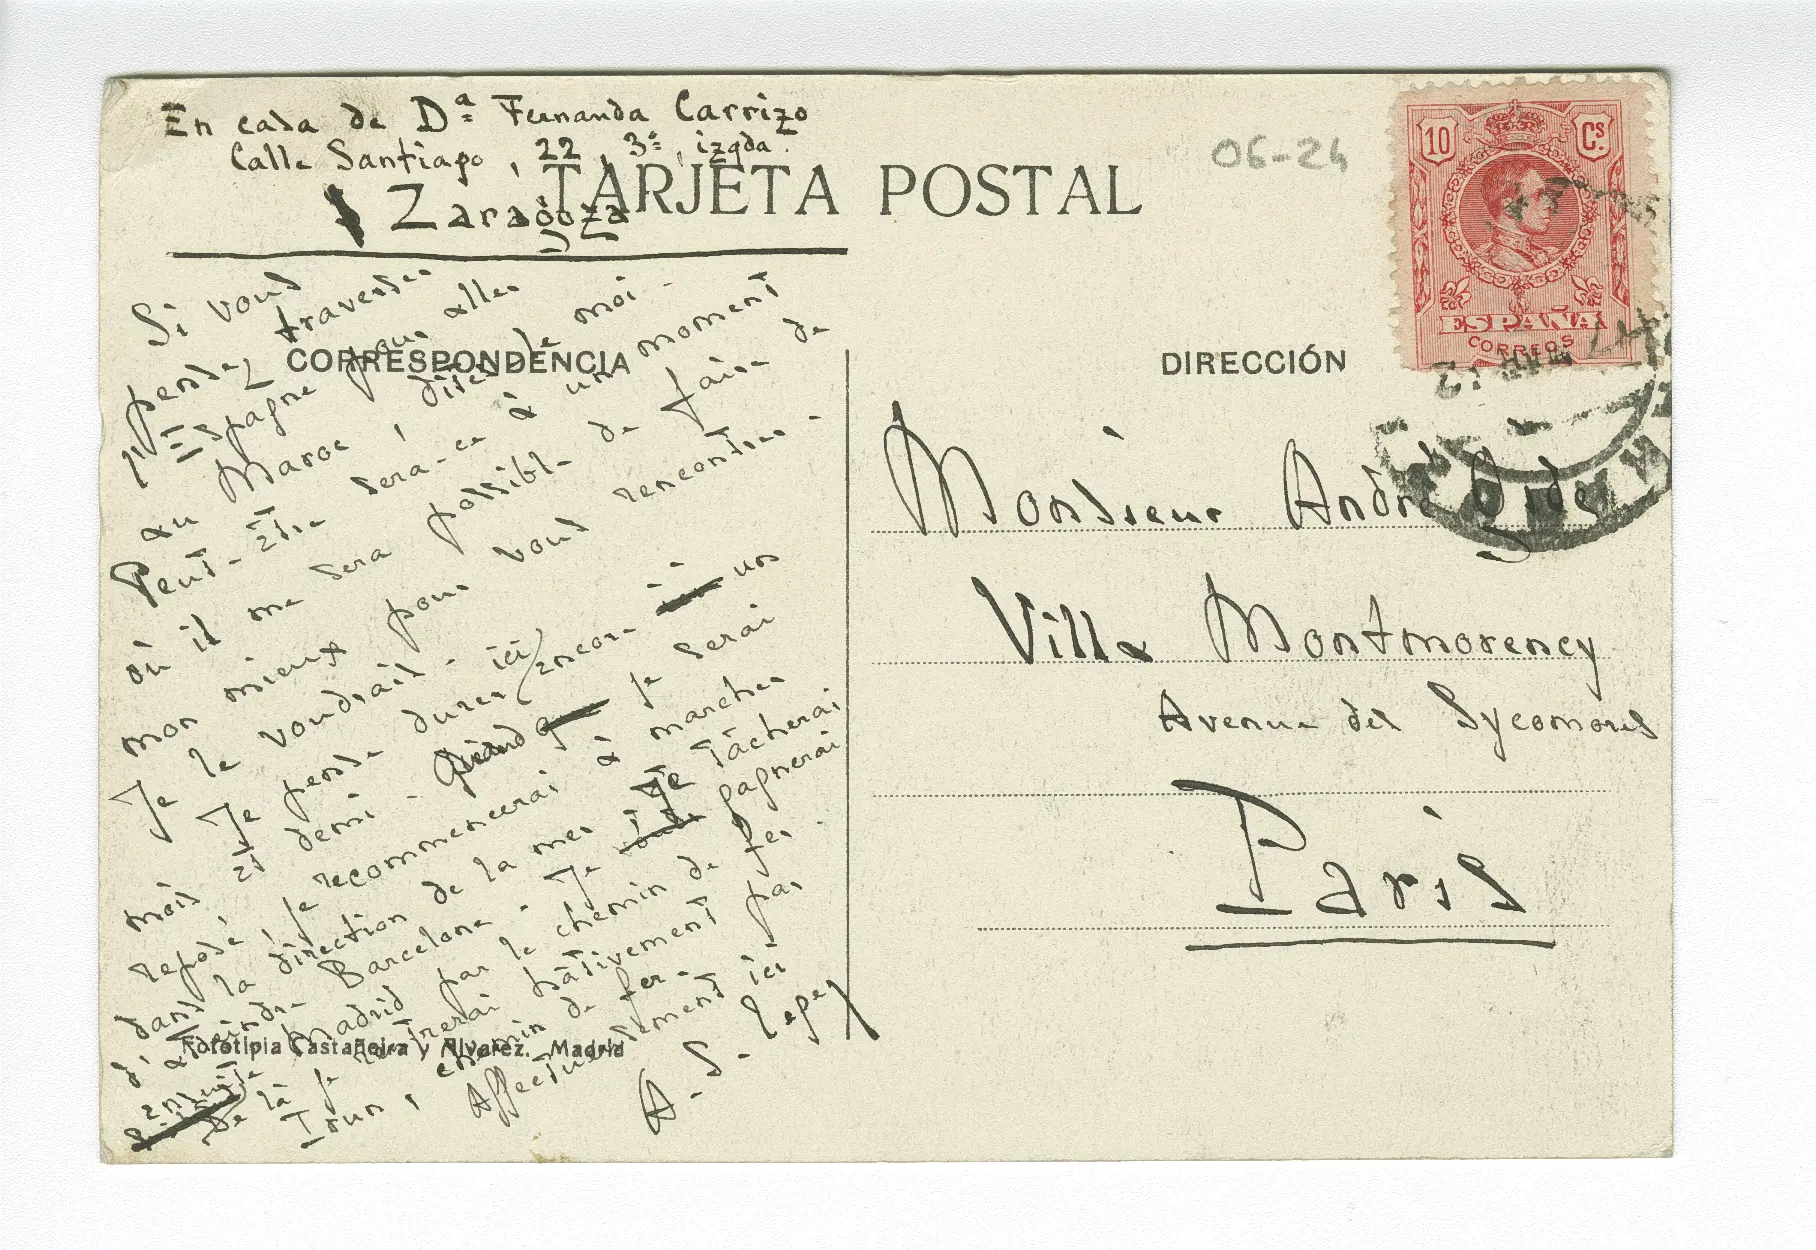 En casa de Dª Fernanda Carrizo
Calle Santiago, 22, 3º, izqda.
Zaragoza
TARJETA POSTAL
06-24
10 Cs
ESPAÑA
CORREOS
CORRESPONDENCIA
DIRECCIÓN
Si vous
pensez traverser
l'Espagne pour aller
au Maroc, dites-le moi.
Peut-être sera-ce à un moment
où il me sera possible de faire de
mon mieux pour vous rencontrer.
Je le voudrais.
Je pense durer ici encore un
mois et demi. Quand je serai
reposé, je recommencerai à marcher
dans la direction de la mer. Je tâcherai
d'atteindre Barcelone. Je gagnerai
ensuite Madrid par le chemin de fer.
De là je rentrerai hâtivement par
Irun, chemin de fer.
Affectueusement ici
A. S. Lepey
Monsieur André Gide
Villa Montmorency
Avenue des Sycomores
Paris
Fototipia Castañeira y Alvarez. Madrid